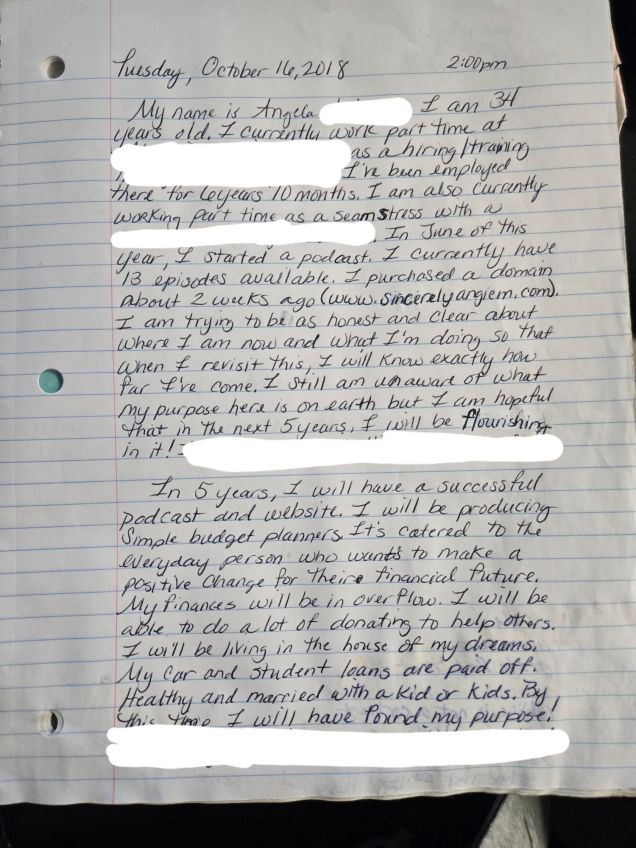 Tuesday, October 16, 2018 2:00pm
My name is Angela I am 34
years old. I currently work part time at
as a hiring/training
I've been employed
there for 6 years 10 months. I am also currently
working part time as a seamstress with a
. In June of this
year, I started a podcast. I currently have
13 episodes available. I purchased a domain
about 2 weeks ago (www.sincerelyangiem.com).
I am trying to be as honest and clear about
where I am now and what I'm doing so that
when I revisit this, I will know exactly how
far I've come. I still am unaware of what
my purpose here is on earth but I am hopeful
that in the next 5 years, I will be flourishing
in it!
In 5 years, I will have a successful
podcast and website. I will be producing
Simple budget planners. It's catered to the
everyday person who wants to make a
positive change for their financial future.
My finances will be in overflow. I will be
able to do a lot of donating to help others.
I will be living in the house of my dreams.
My car and student loans are paid off.
Healthy and married with a kid or kids. By
this time I will have found my purpose!